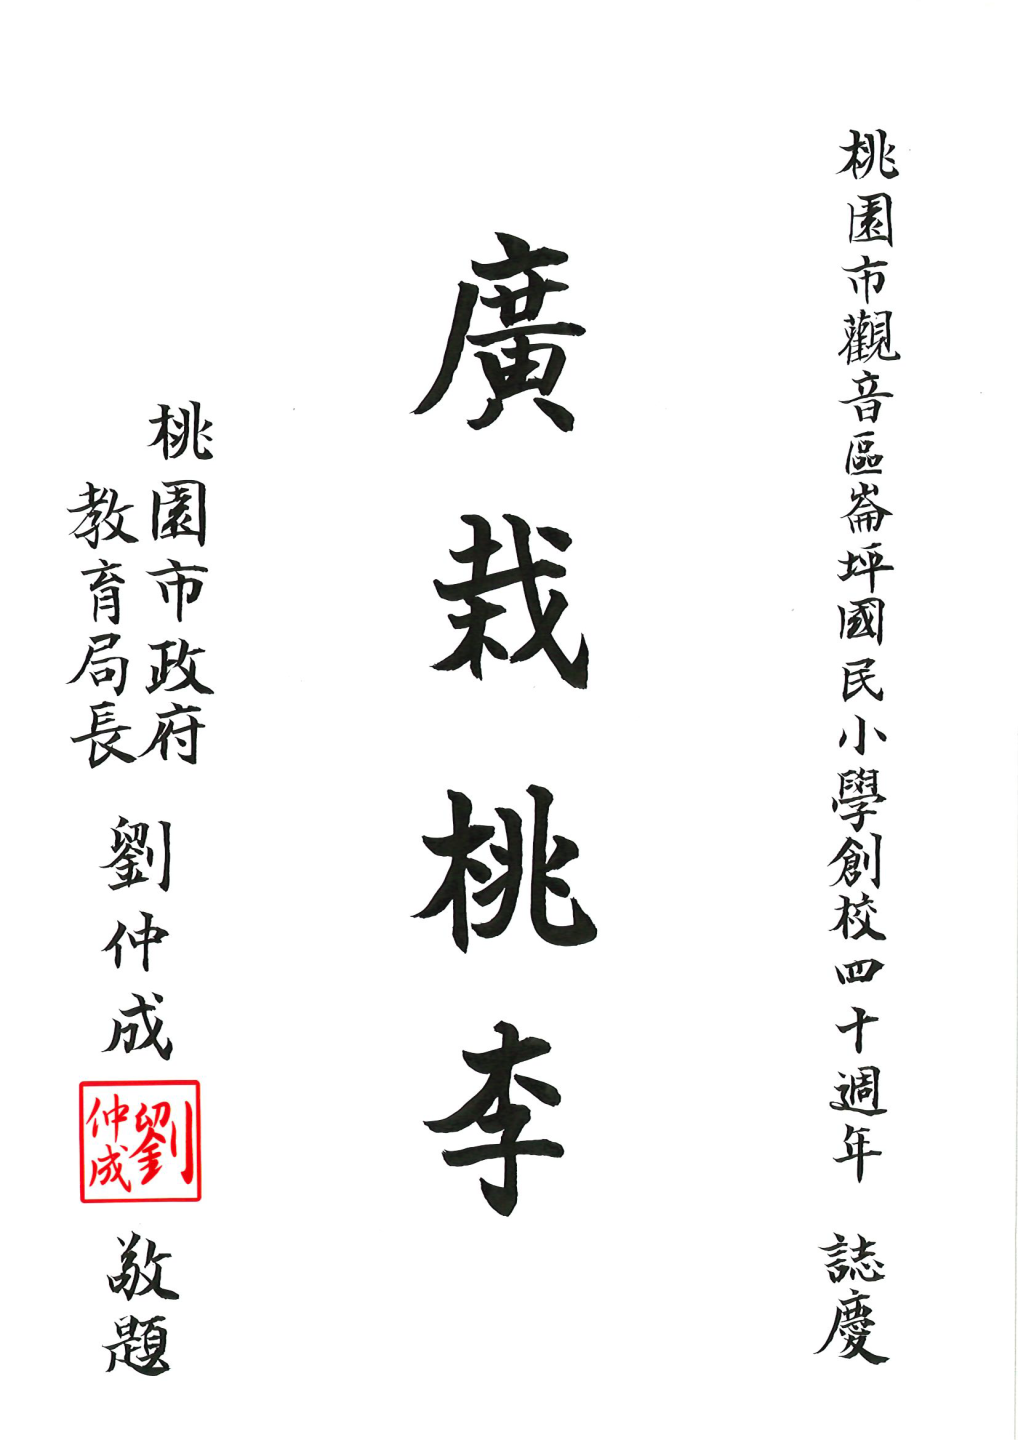 桃園市觀音區崙坪國民小學創校四十週年 誌慶
廣栽桃李
桃園市政府
教育局長
劉仲成
劉仲成
敬題